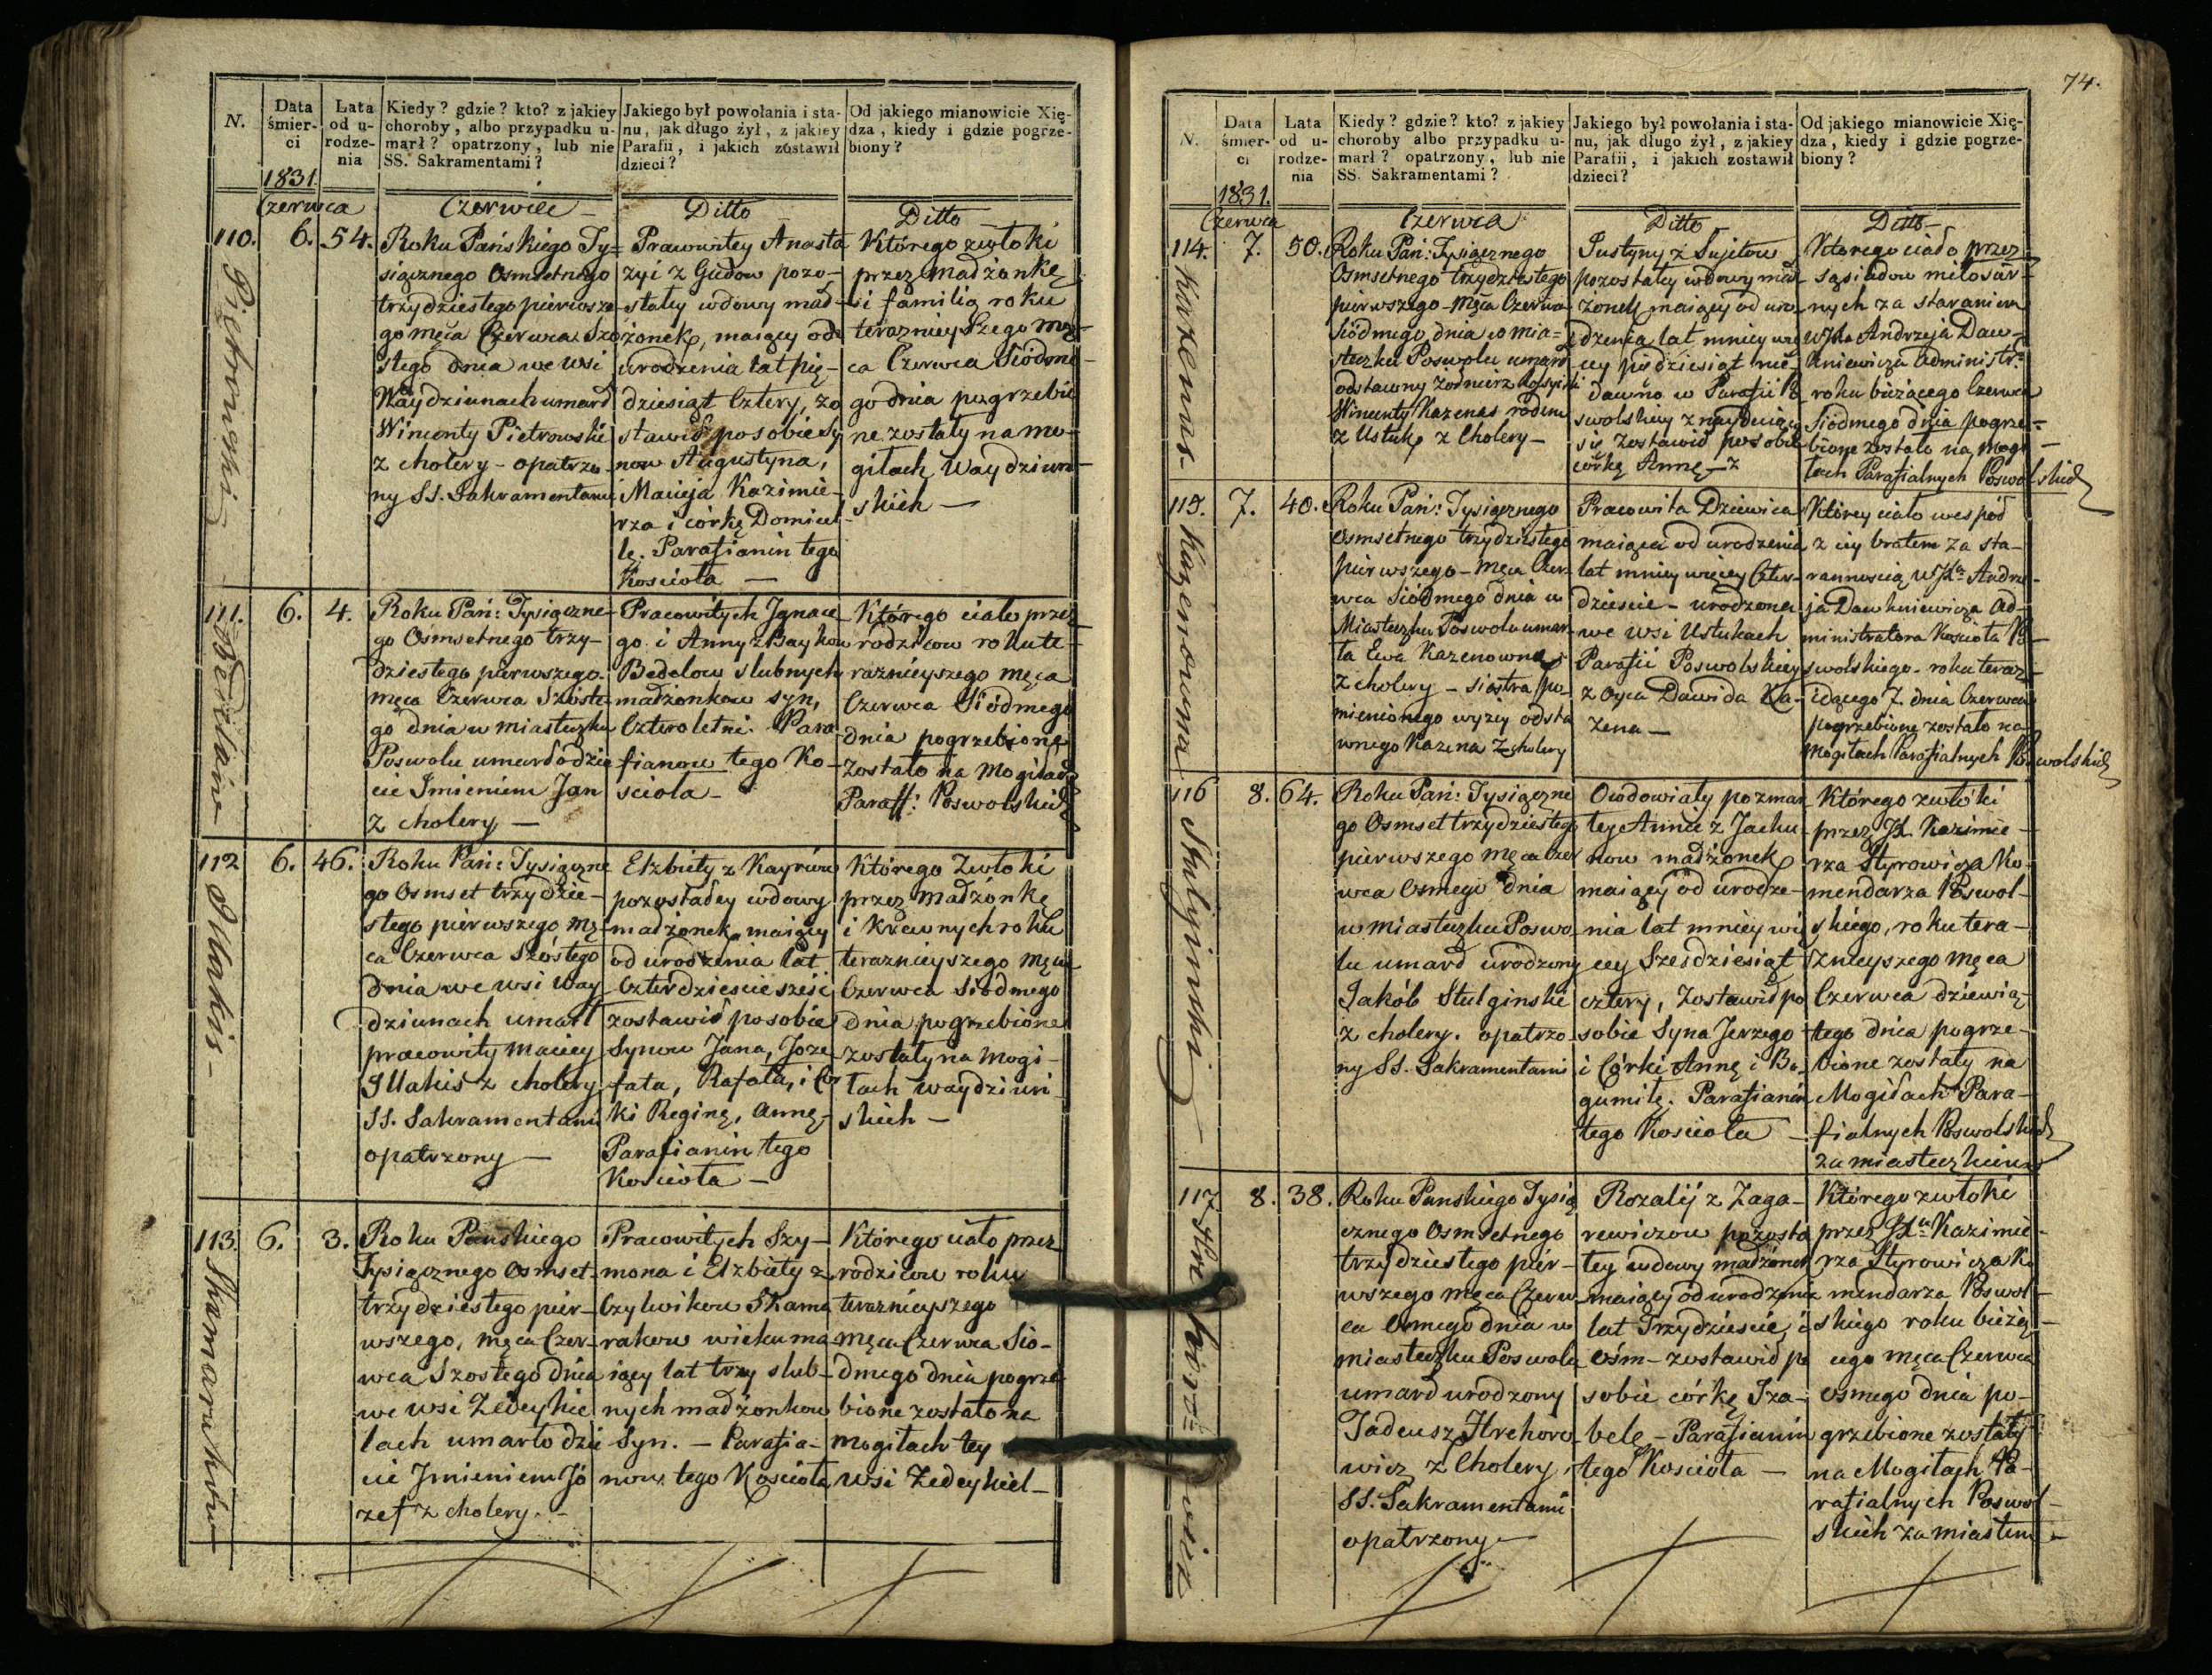 N.
Data śmier- ci
Lata od u- rodze- nia
Kiedy? gdzie? kto? z jakiey
choroby, albo przypadku u-
marł? opatrzony, lub nie
SS. Sakramentami?
Jakiego był powołania i sta-
nu, jak długo żył, z jakiey
Parafii, i jakich zostawił
dzieci?
Od jakiego mianowicie Xię-
dza, kiedy i gdzie pogrze-
biony?
1831.
Czerwca
Czerwiec
Ditto
Ditto
110.
Piętrowski
6.
54.
Roku Pańskiego Ty-
siącznego Osmsetnego
trzydziestego pierwsze-
go męca Czerwca Szo
stego dnia we wsi
Waydziunach umarł
Wincenty Pietrowski
z cholery - opatrzo-
ny SS. Sakramentami
Prawowitey Anasta
zyi z Gudow pozo-
stałey wdowy mał-
żonek, maiący od
urodzenia lat pię-
dziesiąt Cztery, zo
stawił po sobie Sy
now Augustyna,
Macieja Kazimie-
rza i córkę Domicel-
lę. Parafianin tego
Kościoła —
Którego zwłoki
przez małżonkę
i familią roku
teraznieyszego mę-
ca Czerwca Siódme-
go dnia pogrzebio
ne zostały na mo-
giłach Waydziun-
skich —
111.
Bedelów
6.
4.
Roku Pań: Tysiączne-
go Osmsetnego trzy-
dziestego pierwszego
męca Czerwca Szoste-
go dnia w miasteczku
Poswolu umarło dzie
cie Imieniem Jan
z cholery —
Pracowitych Ignace
go i Anny z Baykow
Bedelow slubnych
małżonkow syn,
Czteroletni. Para-
fianow tego Ko-
scioła -
Którego ciało przez
rodzicow roku te-
raznieyszego męca
Czerwca Siódmego
dnia pogrzebione
zostało na Mogiłach
Paraff: Poswolskich
112
6.
46.
Roku Pań: Tysiączne
go Osmset trzydzie-
stego pierwszego mę-
ca Czerwca Szóstego
dnia we wsi Way
dziunach umarł
pracowity Maciey
z cholery
SS. Sakramentami
opatrzony —
Elzbiety z
pozostałey wdowy
małżonek maiący
od urodzenia lat
Czterdzieście sześć
zostawił po sobie
Synow Jana, Joze
fata, Rafała, i Cor
ki Reginę, Annę,
Parafianin tego
Kościoła —
Którego Zwłoki
przez małżonkę
i Krewnych roku
teraznieyszego męca
Czerwca Siódmego
dnia pogrzebione
zostały na mogi-
łach waydziuń
skich —
113.
Skamarakow
6.
3.
Roku Pańskiego
Tysiącznego Osmset-
trzydziestego pier-
wszego, męca Czer-
wca Szostego dnia
we wsi Żedeykie
lach umarło dzie
cie Imieniem Jó
zef z cholery. -
Pracowitych Szy-
mona i Elzbiety z
Skama
rakow wieku ma
iący lat trzy slub-
nych małżonkow
Syn. — Parafia-
now tego Kościoła
Którego ciało przez
rodzicow roku
teraznieyszego
męca Czerwca Sio-
dmego dnia pogrze
bione zostało na
mogiłach tey
wsi Żedeykiel-
74.
N.
Data śmier- ci
Lata od u- rodze- nia
Kiedy? gdzie? kto? z jakiey
choroby albo przypadku u-
marł? opatrzony, lub nie
SS. Sakramentami?
Jakiego był powołania i sta-
nu, jak długo żył, z jakiey
Parafii, i jakich zostawił
dzieci?
Od jakiego mianowicie Xię-
dza, kiedy i gdzie pogrze-
biony?
1831.
Czerwca
Czerwca
Ditto
Ditto
114.
Kazenas
7.
50.
Roku Pań: Tysiącznego
Osmsetnego trzydziestego
pierwszego - Męca Czerwca
Siódmego dnia w mia-
steczku Poswolu umarł
odstawny Żołnierz Rossyiski
Wincenty Kazenas rodem
z Ustuk z Cholery —
Justyny z
pozostałey wdowy mał-
żonek maiący od uro-
dzenia lat mniey wię
cey piędziesiąt nie-
dawno w Parafii Po
swolskiey znayduiący
się zostawił po sobie
córkę Annę —
Ktorego ciało przez
sąsiadow miłosier-
nych za staraniem
Andrzeja Daw-
kniewicza Administr:
roku bieżącego Czerwca
Siódmego dnia pogrze-
bione zostało na Mogi
łach Parafialnych Poswolskich
115.
Kazenowna
7.
40.
Roku Pań: Tysiącznego
Osmsetnego trzydziestego
pierwszego - Męca Czer-
wca Siódmego dnia w
Miasteczku Poswolu umar
ła Ewa Kazenowna
z cholery - siostra po-
mienionego wyżey odsta
wnego Kazena z cholery
Pracowita Dziewica
maiąca od urodzenia
lat mniey więcey Czter-
dzieście - urodzona
we wsi Ustukach
Parafii Poswolskiey
z oyca Dawida Ka-
zena —
Którey ciało wespół
z iey bratem za sta-
rannoscią Andrze-
ja Dawkniewicza Ad-
ministratora Kościoła Po-
swolskiego. roku teraz-
idącego 7. dnia Czerwca
pogrzebione zostało na
Mogiłach Parafialnych Poswolskich
116
Stulginski
8.
64.
Roku Pań: Tysiączne
go Osmset trzydziestego
pierwszego męca Czer
wca Osmego dnia
w miasteczku Poswo
lu umarł urodzony
Jakób Stulginski
z cholery. opatrzo
ny SS. Sakramentami
Owdowiały po zmar
łey Annie z Jacku-
now małżonek
maiący od urodze-
nia lat mniey wię
cey Sześdziesiąt
cztery, zostawił po
sobie Syna Jerzego
i Córki Annę i Bo-
gumiłę. Parafianin
tego Kościoła —
Którego zwłoki
przez JX Kazimie-
rza Styrowicza Ko-
mendarza Poswol-
skiego, roku tera-
znieyszego Męca
Czerwca dziewią-
tego dnia pogrze-
bione zostały na
Mogiłach Para-
fialnych Poswolskich
za miasteczkiem
117
Hrehorowicz
8.
38.
Roku Pańskiego Tysią
cznego Osmsetnego
trzydziestego pier-
wszego męca Czerw
ca Osmego dnia w
miasteczku Poswolu
umarł urodzony
Tadeusz Hrehoro-
wicz z Cholery,
SS. Sakramentami
opatrzony —
Rozalij z Zaga-
rewiczow pozosta
łey wdowy małżonek
maiący od urodzenia
lat Trzydzieście i
ośm - zostawił po
sobie córkę Iza-
belę - Parafianin
tego Kościoła —
Którego zwłoki
przez Kazimie-
rza Styrowicza Ko
mendarza Poswol-
skiego roku bieżą-
cego męca Czerwca
osmego dnia po-
grzebione zostały
na Mogiłach Pa-
rafialnych Poswol-
skich za miastem -